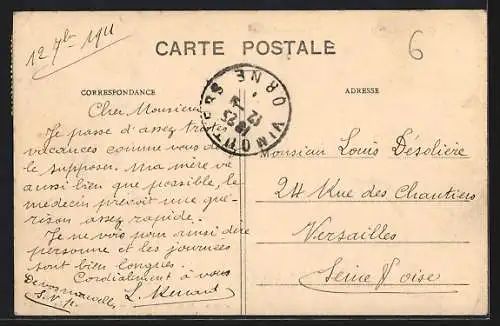 12 7bre 1911
CARTE POSTALE
6
CORRESPONDANCE
ADRESSE
VIMOUTIERS ORNE
18 25
12
Cher Monsieur
Je passe d'assez tristes
vacances comme vous devez
le supposer. Ma mère va
aussi bien que possible, le
médecin prévoit une gué-
rison assez rapide.
Je ne vois pour ainsi dire
personne et les journées
sont bien longues.
Cordialement à vous
L. Menard
S.V.P.
Monsieur Louis Désolière
24 Rue des Chantiers
Versailles
Seine & oise